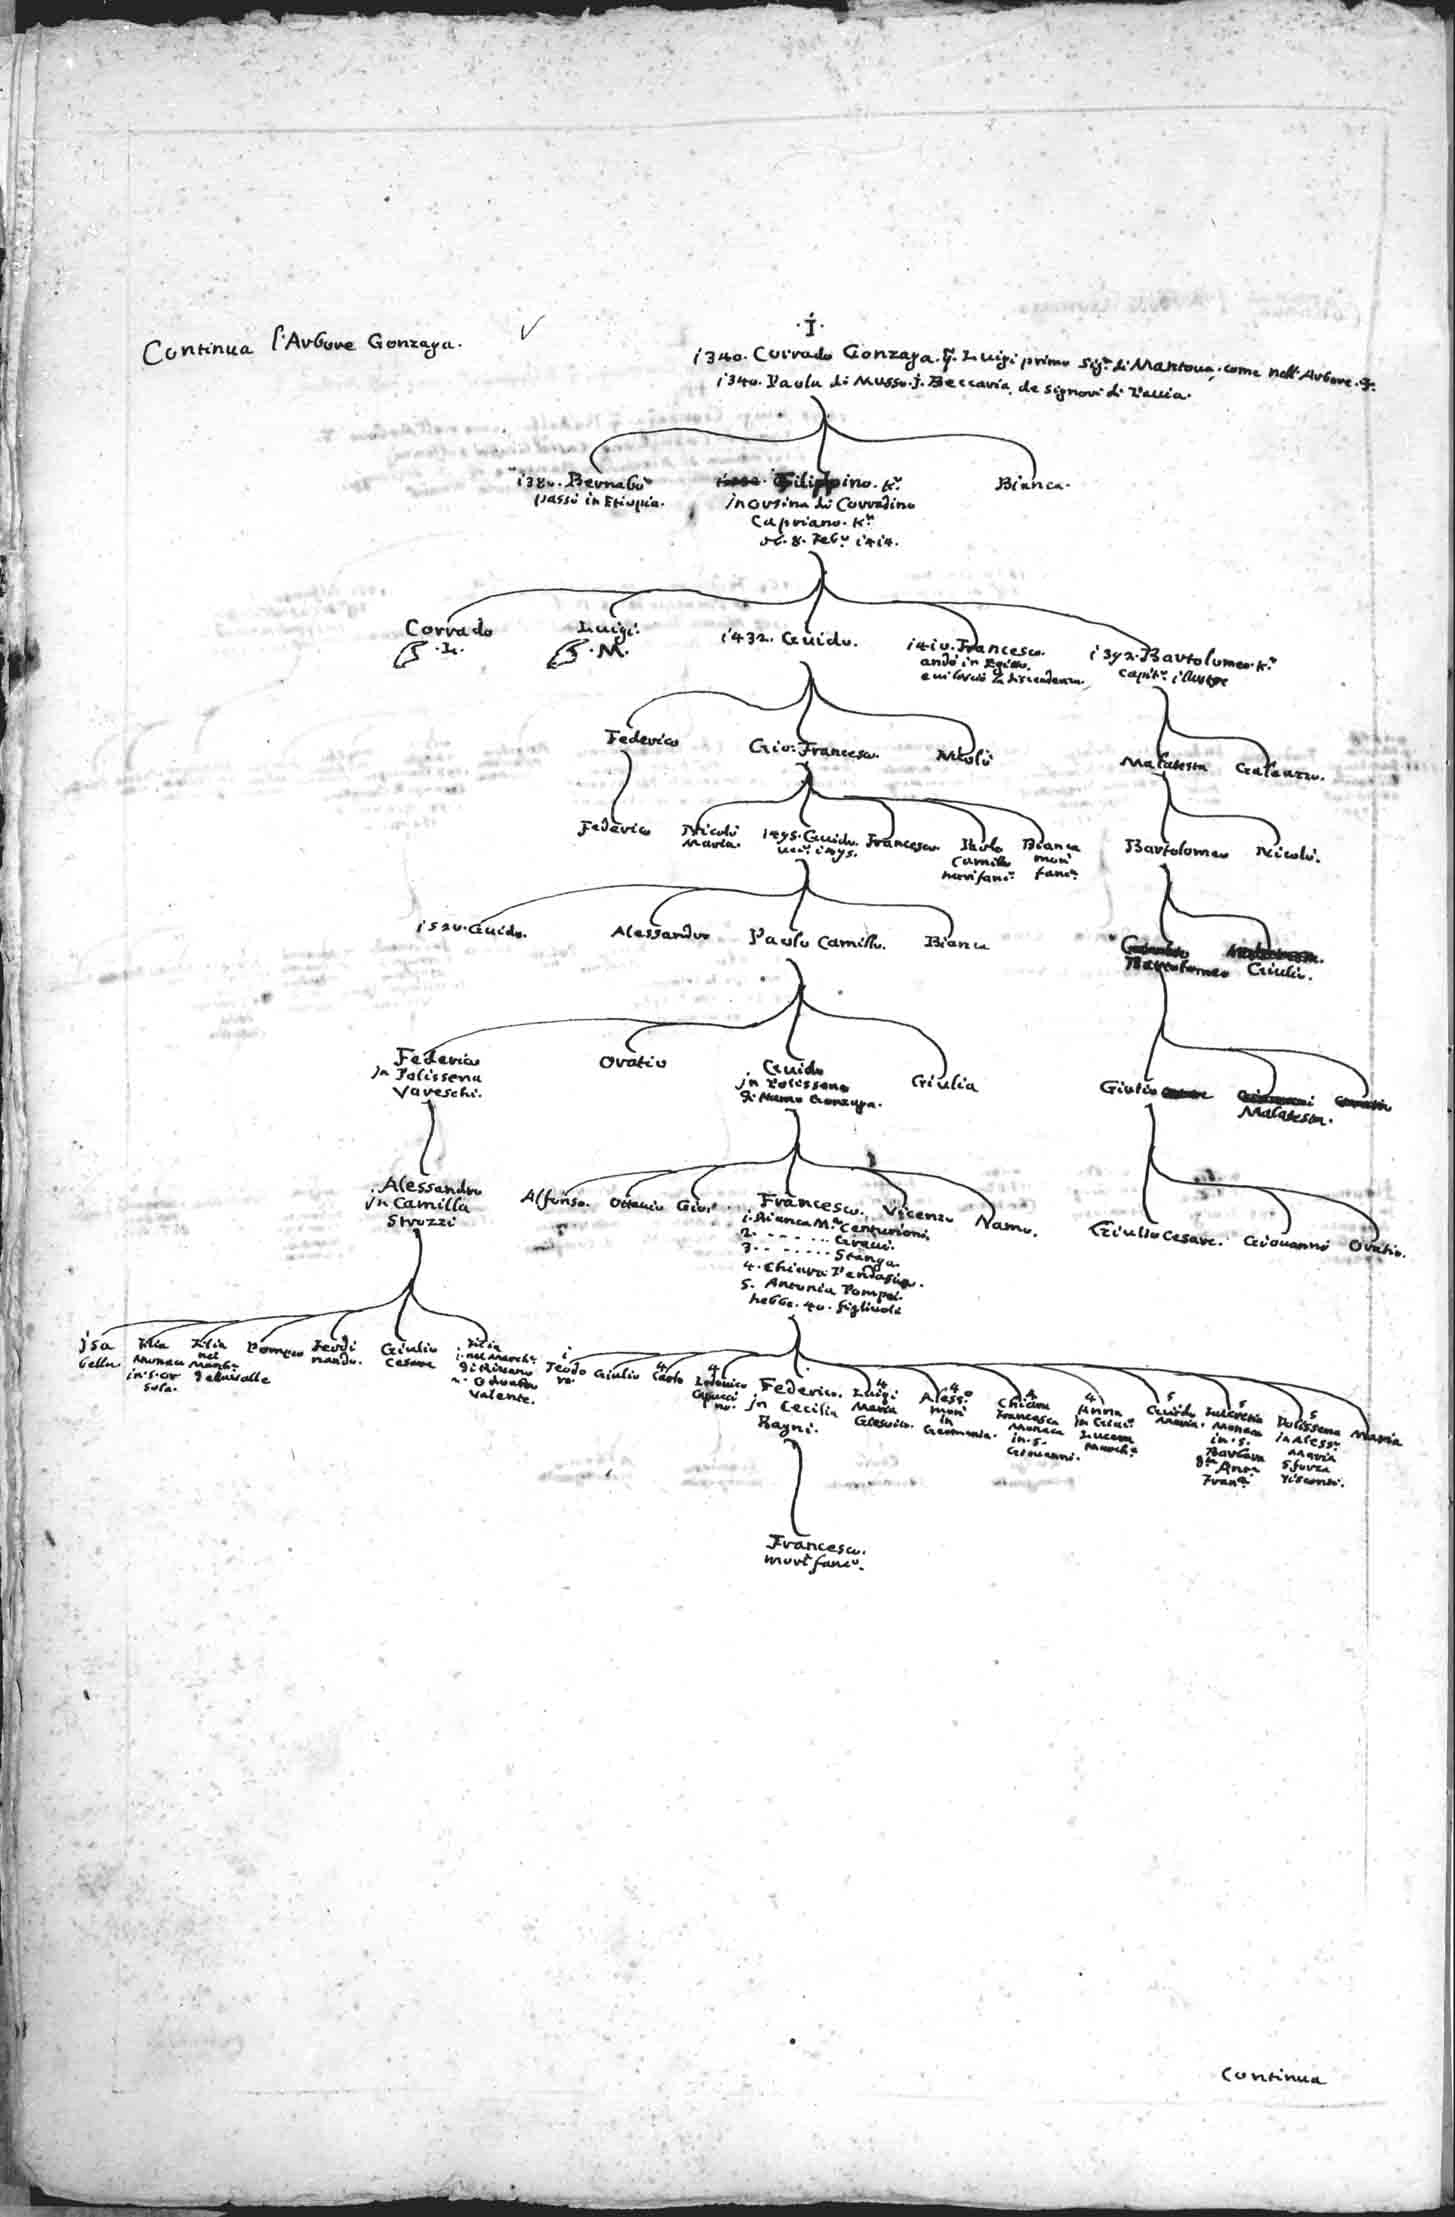 Continua l'Arbore Gonzaga.
·I·
1340. Corrado Gonzaga. q. Luigi primo Sig.r di Mantoua, come nell'Arbore.
1340. Paola di Musso. Beccaria, de Signori di Pauia.
1380. Bernabò
passò in Etiopia.
Filippino. K.r
in Orsina di Corradino
Capriano. K.r
ob. 8. Feb.o 1414.
Bianca.
Corrado
·L·
Luigi.
·M·
1432. Guido.
1410. Francesco.
andò in Egitto.
e ui lasciò la discendenza.
1392. Bartolomeo. K.r
Capit.o illustre
Federico
Gio: Francesco.
Nicolò
Malatesta
Galeazzo.
Federico
Nicolò
Maria.
1495. Guido.
Francesco.
Paolo
Camillo
Bianca
morì
fanc.a
Bartolomeo
Nicolò.
1520. Guido.
Alessandro
Paolo Camillo.
Bianca
Bartolomeo
Giulio.
Federico
in Polissena
Vareschi.
Oratio
Guido
in Polissena
di Namo Gonzaga.
Giulia
Giulio
Malatesta.
Alessandro
in Camilla
Strozzi
Alfonso.
Ottauio
Gio:
Francesco.
1. Bianca M.a Centurioni.
2. - - - - -
3. - - - - - Stanga
4. Chiara Pendasia.
5. Antonia Pompei.
hebbe. 40. figliuoli
Vicenzo
Namo.
Giulio Cesare.
Giouanni
Oratio.
Isa
bella.
Filia
Monaca
in S. Or
sola.
Filia
nel
March.e
della Valle
Pompeo
Ferdi
nando.
Giulio
Cesare
Filia
1. nel March.e
Valente.
1
Teodo
ro.
Giulio
4
Carlo
4
Lodouico
Capucci
no.
Federico.
in Cecilia
Bagni.
4
Luigi
Maria
Giesuito.
4
Aless.o
morì
in
Germania.
4
Chiara
Francesca
Monaca
in S.
Giouanni.
4
Anna
March.e
5
Guido
Maria.
5
Lucretia
Monaca
in S.
Barbara
Anna
Fran.a
5
Polissena
in Aless.o
Maria
Sforza
Visconti.
Maria
Francesco.
morì fanc.o
Continua